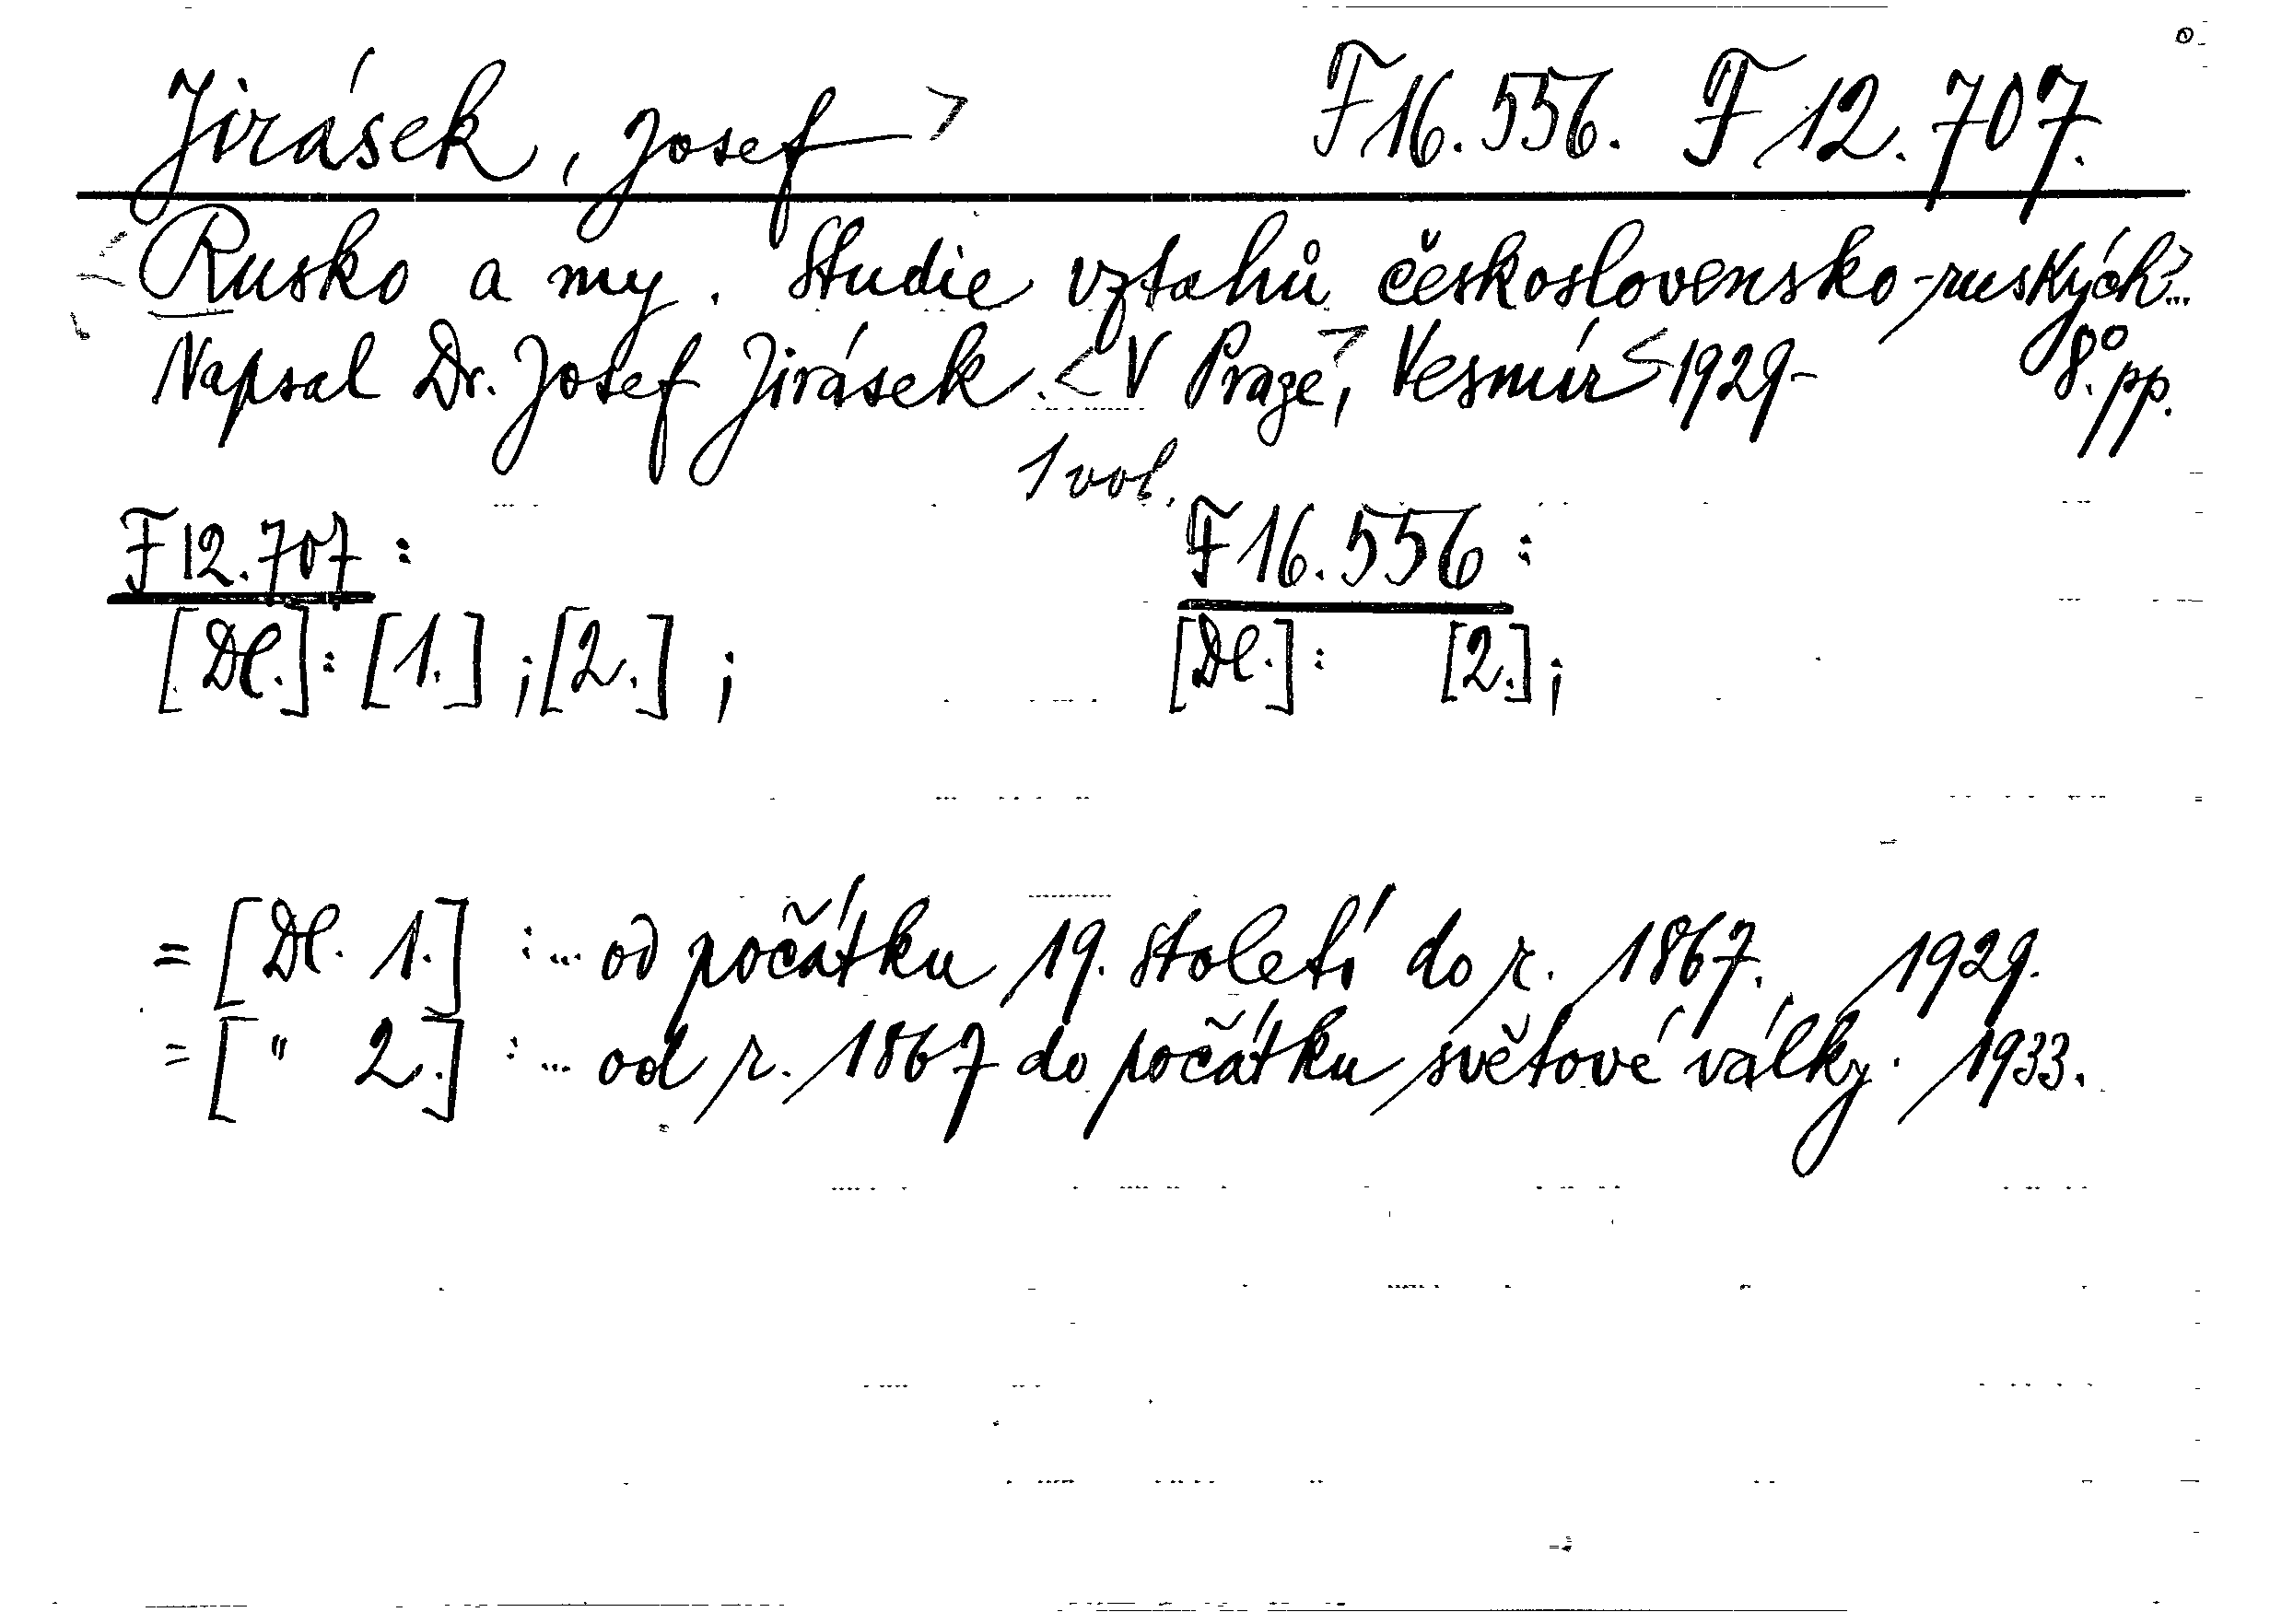 Jirásek, Josef> F16.556. F12.707.
<Rusko a my. Studie vztahů československo-ruských>...
Napsal Dr. Josef Jirásek. <V Praze>, Vesmír <1929- 8°. pp.
1 vol.
F12.707: F16.556:
[Dl.]: [1.]; [2.]; [Dl.]: [2.];
= [Dl. 1.] : ... od počátku 19. století do r. 1867. 1929.
= [" 2.] : ... od r. 1867 do počátku světové války. 1933.